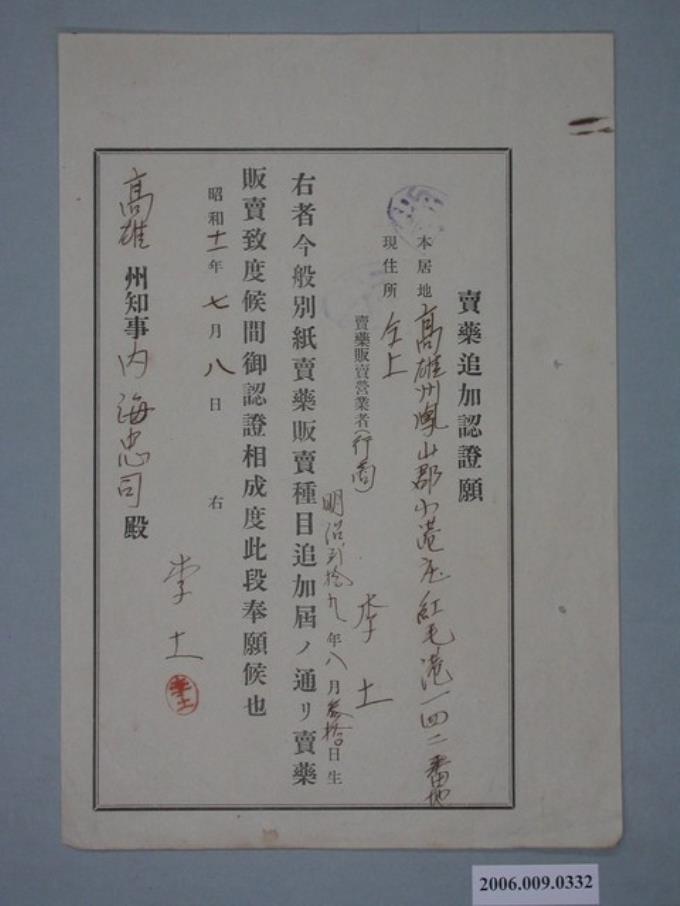 賣藥追加認證願
本居地 高雄州鳳山郡小港庄紅毛港一四二番地
現住所 仝上
賣藥販賣營業者(行商)
李土
明治貳拾九年八月叁拾日生
右者今般別紙賣藥販賣種目追加屆ノ通リ賣藥
販賣致度候間御認證相成度此段奉願候也
昭和十一年七月八日
右
李土
高雄州知事內海忠司殿
2006.009.0332